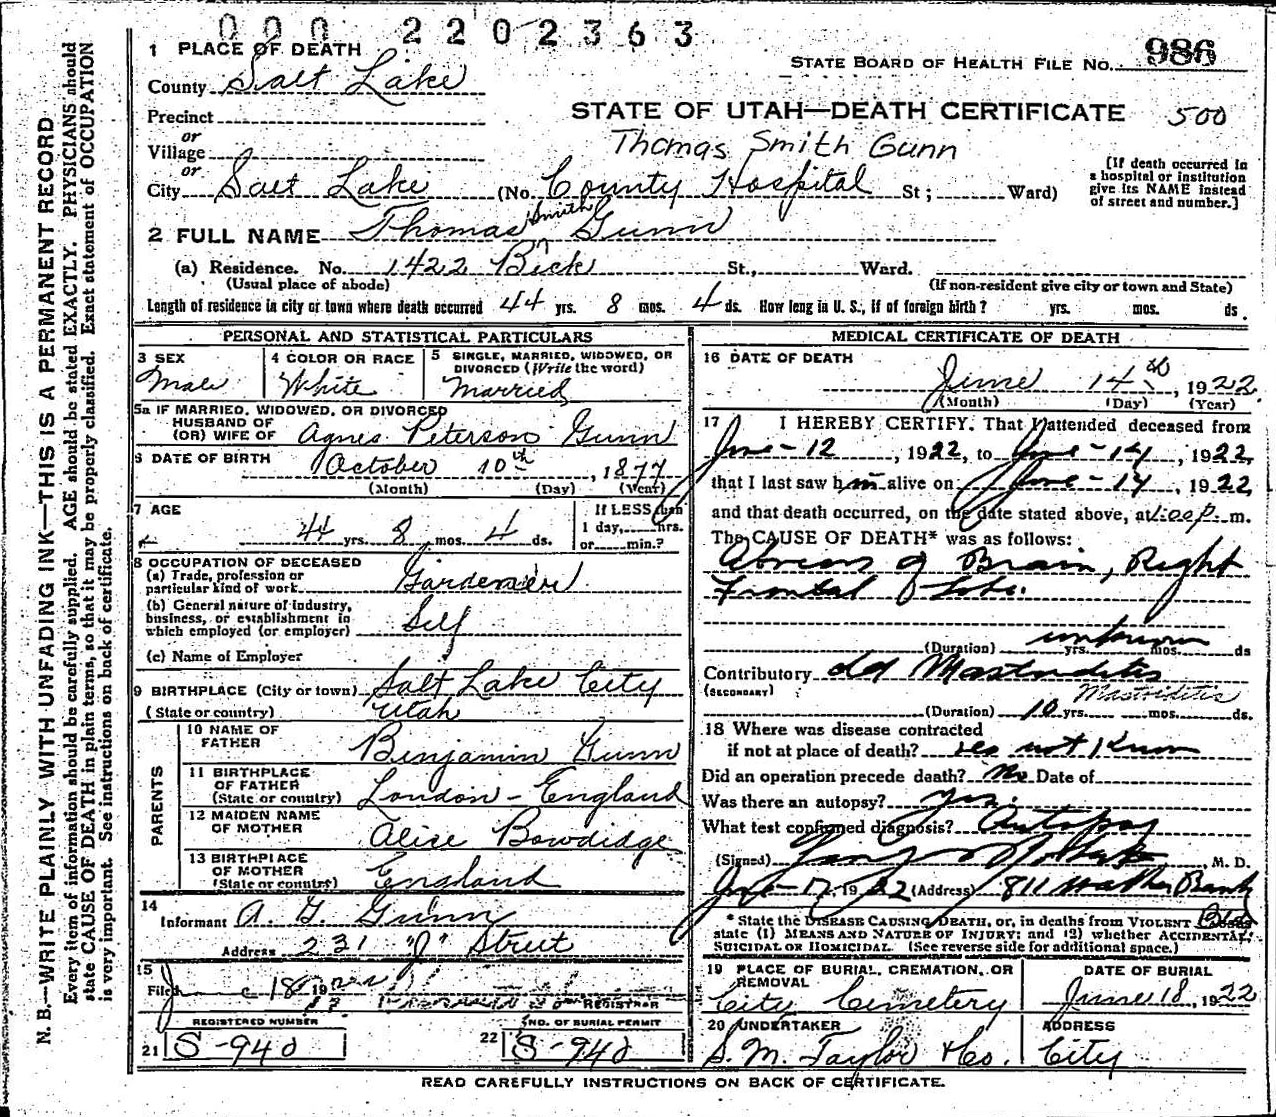 000 2202363
1 PLACE OF DEATH
STATE BOARD OF HEALTH FILE NO. 986
County Salt Lake
STATE OF UTAH—DEATH CERTIFICATE 500
Precinct
or
Thomas Smith Gunn
Village
or
[If death occurred in a hospital or institution give its NAME instead of street and number.]
City Salt Lake (No. County Hospital St; Ward)
2 FULL NAME Thomas Smith Gunn
(a) Residence. No. 1422 St., Ward.
(Usual place of abode) (If non-resident give city or town and State)
Length of residence in city or town where death occurred 44 yrs. 8 mos. 4 ds. How long in U. S., if of foreign birth? yrs. mos. ds.
PERSONAL AND STATISTICAL PARTICULARS
3 SEX 4 COLOR OR RACE 5 SINGLE, MARRIED, WIDOWED, OR DIVORCED (Write the word)
Male White Married
5a IF MARRIED, WIDOWED, OR DIVORCED
HUSBAND OF
(OR) WIFE OF Agnes Peterson Gunn
6 DATE OF BIRTH October 10th, 1877
(Month) (Day) (Year)
7 AGE If LESS than
44 yrs. 8 mos. 4 ds. 1 day, hrs.
or min.?
8 OCCUPATION OF DECEASED
(a) Trade, profession or particular kind of work Gardener
(b) General nature of industry, business, or establishment in which employed (or employer) Self
(c) Name of Employer
9 BIRTHPLACE (City or town) Salt Lake City
(State or country) Utah
PARENTS
10 NAME OF FATHER Benjamin Gunn
11 BIRTHPLACE OF FATHER (State or country) London - England
12 MAIDEN NAME OF MOTHER Alice Bowdidge
13 BIRTHPLACE OF MOTHER (State or country) England
14
Informant A. G. Gunn
Address 231 "J" Street
15
Filed 18 19
REGISTRAR
REGISTERED NUMBER NO. OF BURIAL PERMIT
21 S-940 22 S-940
MEDICAL CERTIFICATE OF DEATH
16 DATE OF DEATH
June 14th, 1922
(Month) (Day) (Year)
17 I HEREBY CERTIFY. That I attended deceased from
June-12, 1922, to June-14, 1922,
that I last saw him alive on June-14, 1922,
and that death occurred, on the date stated above, at 1:00 p. m.
The CAUSE OF DEATH* was as follows:
Abscess of Brain, Right
Frontal Lobe.
unknown
(Duration) yrs. mos. ds
Contributory old Mastoiditis
(SECONDARY) Mastoiditis
(Duration) 10 yrs. mos. ds.
18 Where was disease contracted
if not at place of death? not know
Did an operation precede death? No Date of
Was there an autopsy? yes.
What test confirmed diagnosis? Autopsy
(Signed) M. D.
June-17, 1922 (Address) 811 Walker Bank
Bldg
* State the DISEASE CAUSING DEATH, or, in deaths from VIOLENT CAUSES state (1) MEANS AND NATURE OF INJURY; and (2) whether ACCIDENTAL, SUICIDAL OR HOMICIDAL. (See reverse side for additional space.)
19 PLACE OF BURIAL, CREMATION, OR REMOVAL DATE OF BURIAL
City Cemetery June 18, 1922
20 UNDERTAKER ADDRESS
S. M. Taylor & Co. City
READ CAREFULLY INSTRUCTIONS ON BACK OF CERTIFICATE.
N. B.—WRITE PLAINLY WITH UNFADING INK—THIS IS A PERMANENT RECORD
Every item of information should be carefully supplied. AGE should be stated EXACTLY. PHYSICIANS should
state CAUSE OF DEATH in plain terms, so that it may be properly classified. Exact statement of OCCUPATION
is very important. See instructions on back of certificate.